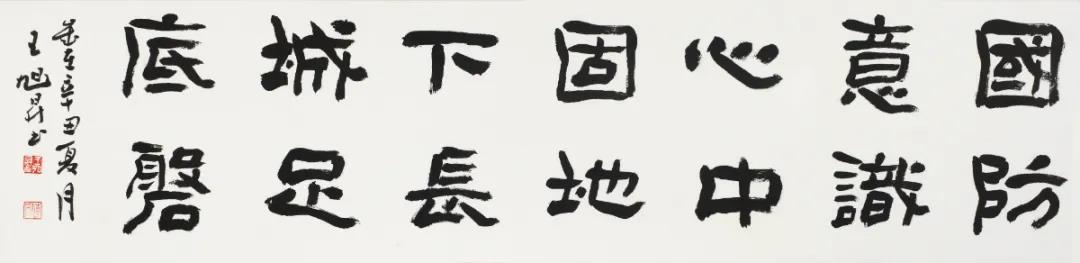 國防
意識
心中
固地
下長
城足
底磐
歲在辛丑夏月
王旭昇书